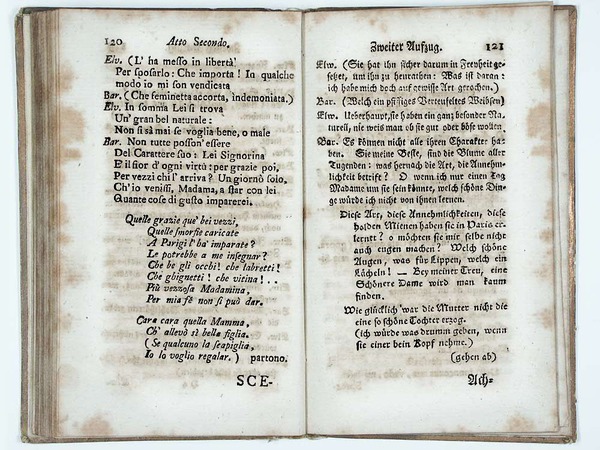 120 Atto Secondo.
Elv. (L' ha messo in libertà'
Per sposarlo: Che importa! In qualche
modo io mi son vendicata
Bar. (Che feminetta accorta, indemoniata.)
Elv. In somma Lei si trova
Un' gran bel naturale:
Non si sà mai se voglia bene, o male
Bar. Non tutte posson' essere
Del Carattere suo: Lei Signorina
E il fior d' ogni virtù: per grazie poi,
Per vezzi chi l' arriva? Un giorno solo,
Ch' io venissi, Madama, a star con lei
Quante cose di gusto imparerei.
Quelle grazie que' bei vezzi,
Quelle smorfie caricate
A Parigi l' ha' imparate?
Le potrebbe a me insegnar?
Che be gli occhi! che labretti!
Che ghignetti! che vitina!..
Più vezzosa Madamina,
Per mia fè non si può dar.
Cara cara quella Mamma,
Ch' allevò sì bella figlia.
(Se qualcuno la scapiglia,
Io lo voglio regalar.) partono.
SCE-
Zweiter Aufzug. 121
Elw. (Sie hat ihn sicher darum in Freyheit ge-
setzet, um ihn zu heurathen: Was ist daran:
ich habe mich doch auf gewisse Art gerochen.)
Bar. (Welch ein pfiffiges Verteufeltes Weibsen)
Elw. Ueberhaupt, sie haben ein ganz besonder Na-
turell, nie weis man ob sie gut oder böse wollen
Bar. Es können nicht alle ihren Charakter ha-
ben. Sie meine Beste, sind die Blume aller
Tugenden: was hernach die Art, die Annehm-
lichkeit betrifft? O wenn ich nur einen Tag
Madame um sie sein könnte, welch schöne Din-
ge würde ich nicht von ihnen lernen.
Diese Art, diese Annehmlichkeiten, diese
holden Mienen haben sie in Paris er-
lernet? o möchten sie mir selbe nicht
auch eugen machen? Welch schöne
Augen, was für Lippen, welch ein
Lächeln! — Bey meiner Treu, eine
Schönere Dame wird man kaum
finden.
Wie glücklich war die Mutter nicht die
eine so schöne Tochter erzog.
(ich würde was drum geben, wenn
sie einer bein Kopf nehme.)
(gehen ab)
Ach-